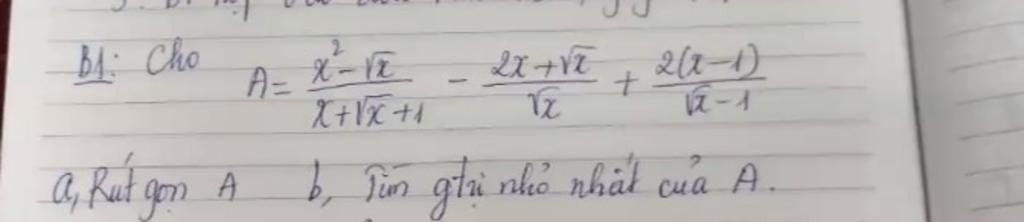 B1: Cho A = \frac{x^2-\sqrt{x}}{x+\sqrt{x}+1} - \frac{2x+\sqrt{x}}{\sqrt{x}} + \frac{2(x-1)}{\sqrt{x}-1}
a, Rút gọn A b, Tìm gtrị nhỏ nhất của A.